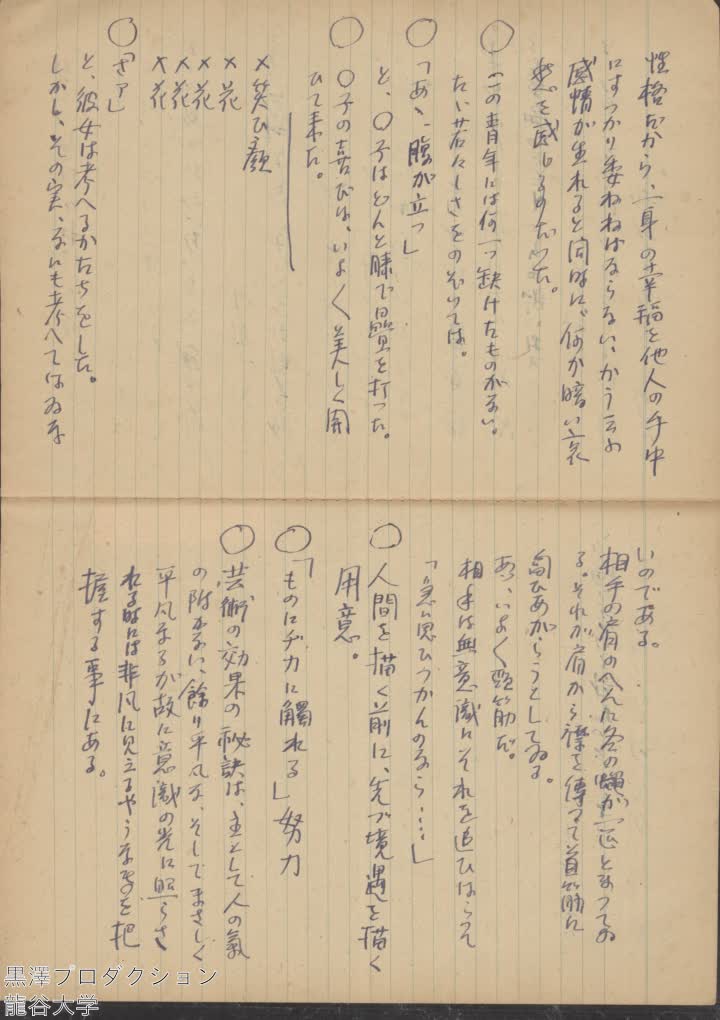 性格だから、一身の幸福を他人の手中
にすっかり委ねねばならない、かう云ふ
感情が生れると同時に、何か暗い哀
愁を感じるのだった。
◯ この青年には何一つ缺けたものがない。
たゞ若々しさをのぞいては。
◯ 「あゝ、腹が立つ」
と、〇子はどんと膝で畳を打った。
◯ 〇子の喜びは、いよ〱美しく開
ひて来た。
×笑ひ顔
×花
×花
×花
×花
◯ 「さア」
と、彼女は考へるかたちをした。
しかし、その実、なにも考へてはゐな
いのである。
相手の肩のへんに冬の蠅が一匹とまってゐ
る。それが肩から襟を傳って首筋に
匍ひあがらうとしてゐる。
あゝ、いよ〱頸筋だ。
相手は無意識にそれを追ひはらって
「急に思ひつかんのなら……」
◯ 人間を描く前に、先づ境遇を描く
用意。
◯ 「ものにヂカに觸れる」努力
◯ 芸術の効果の秘訣は、主として人の氣
の附かない、餘り平凡な、そしてまさしく
平凡なるが故に意識の光に照らさ
れる時には非凡に見えるやうな事を把
握する事にある。
黒澤プロダクション
龍谷大学